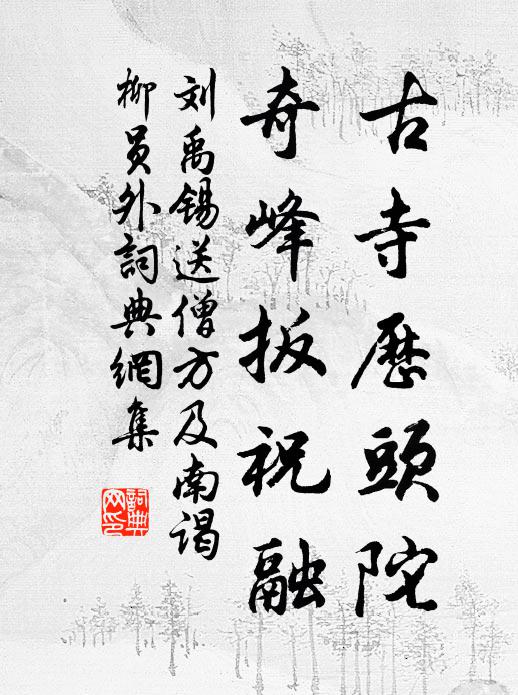 古寺歷頭陀
奇峰扳祝融
刘禹锡送僧方及南谒
柳员外詞典網集
詞典
网印